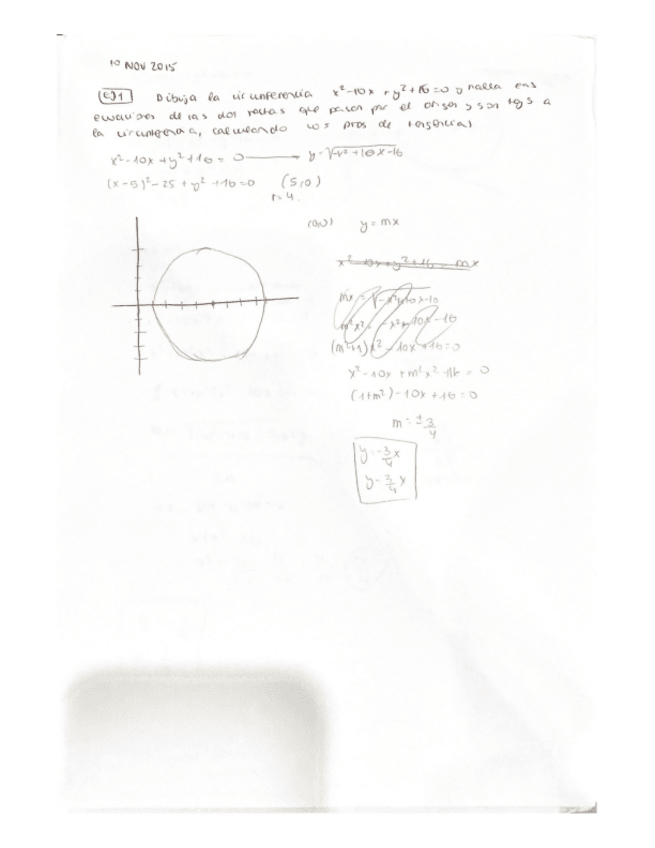 10 NOV 2015
EJ1 Dibuja la circunferencia x²-10x+y²+16=0 y halla las
ecuaciones de las dos rectas que pasan por el origen y son tgs a
la circunferencia, calculando los ptos de tangencia
x²-10x+y²+16=0 → y=√-x²+10x-16
(x-5)²-25+y²+16=0 (5,0)
r=4.
(0,0) y=mx
x²-10x+y²+16=mx
(m²+1)x²-10x+16=0
x²-10x+m²x²+16=0
(1+m²)-10x+16=0
m=±3/4
y=-3/4x
y=3/4x